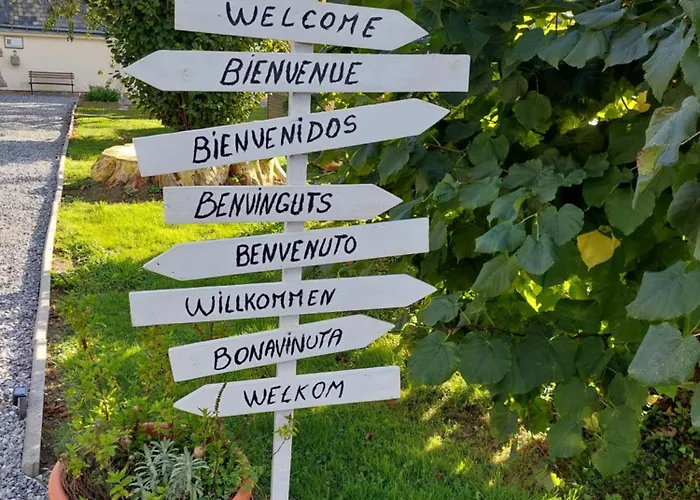 WELCOME
BIENVENUE
BIENVENIDOS
BENVINGUTS
BENVENUTO
WILLKOMMEN
BONAVINUTA
WELKOM